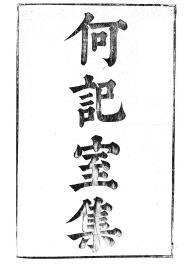 何記室集